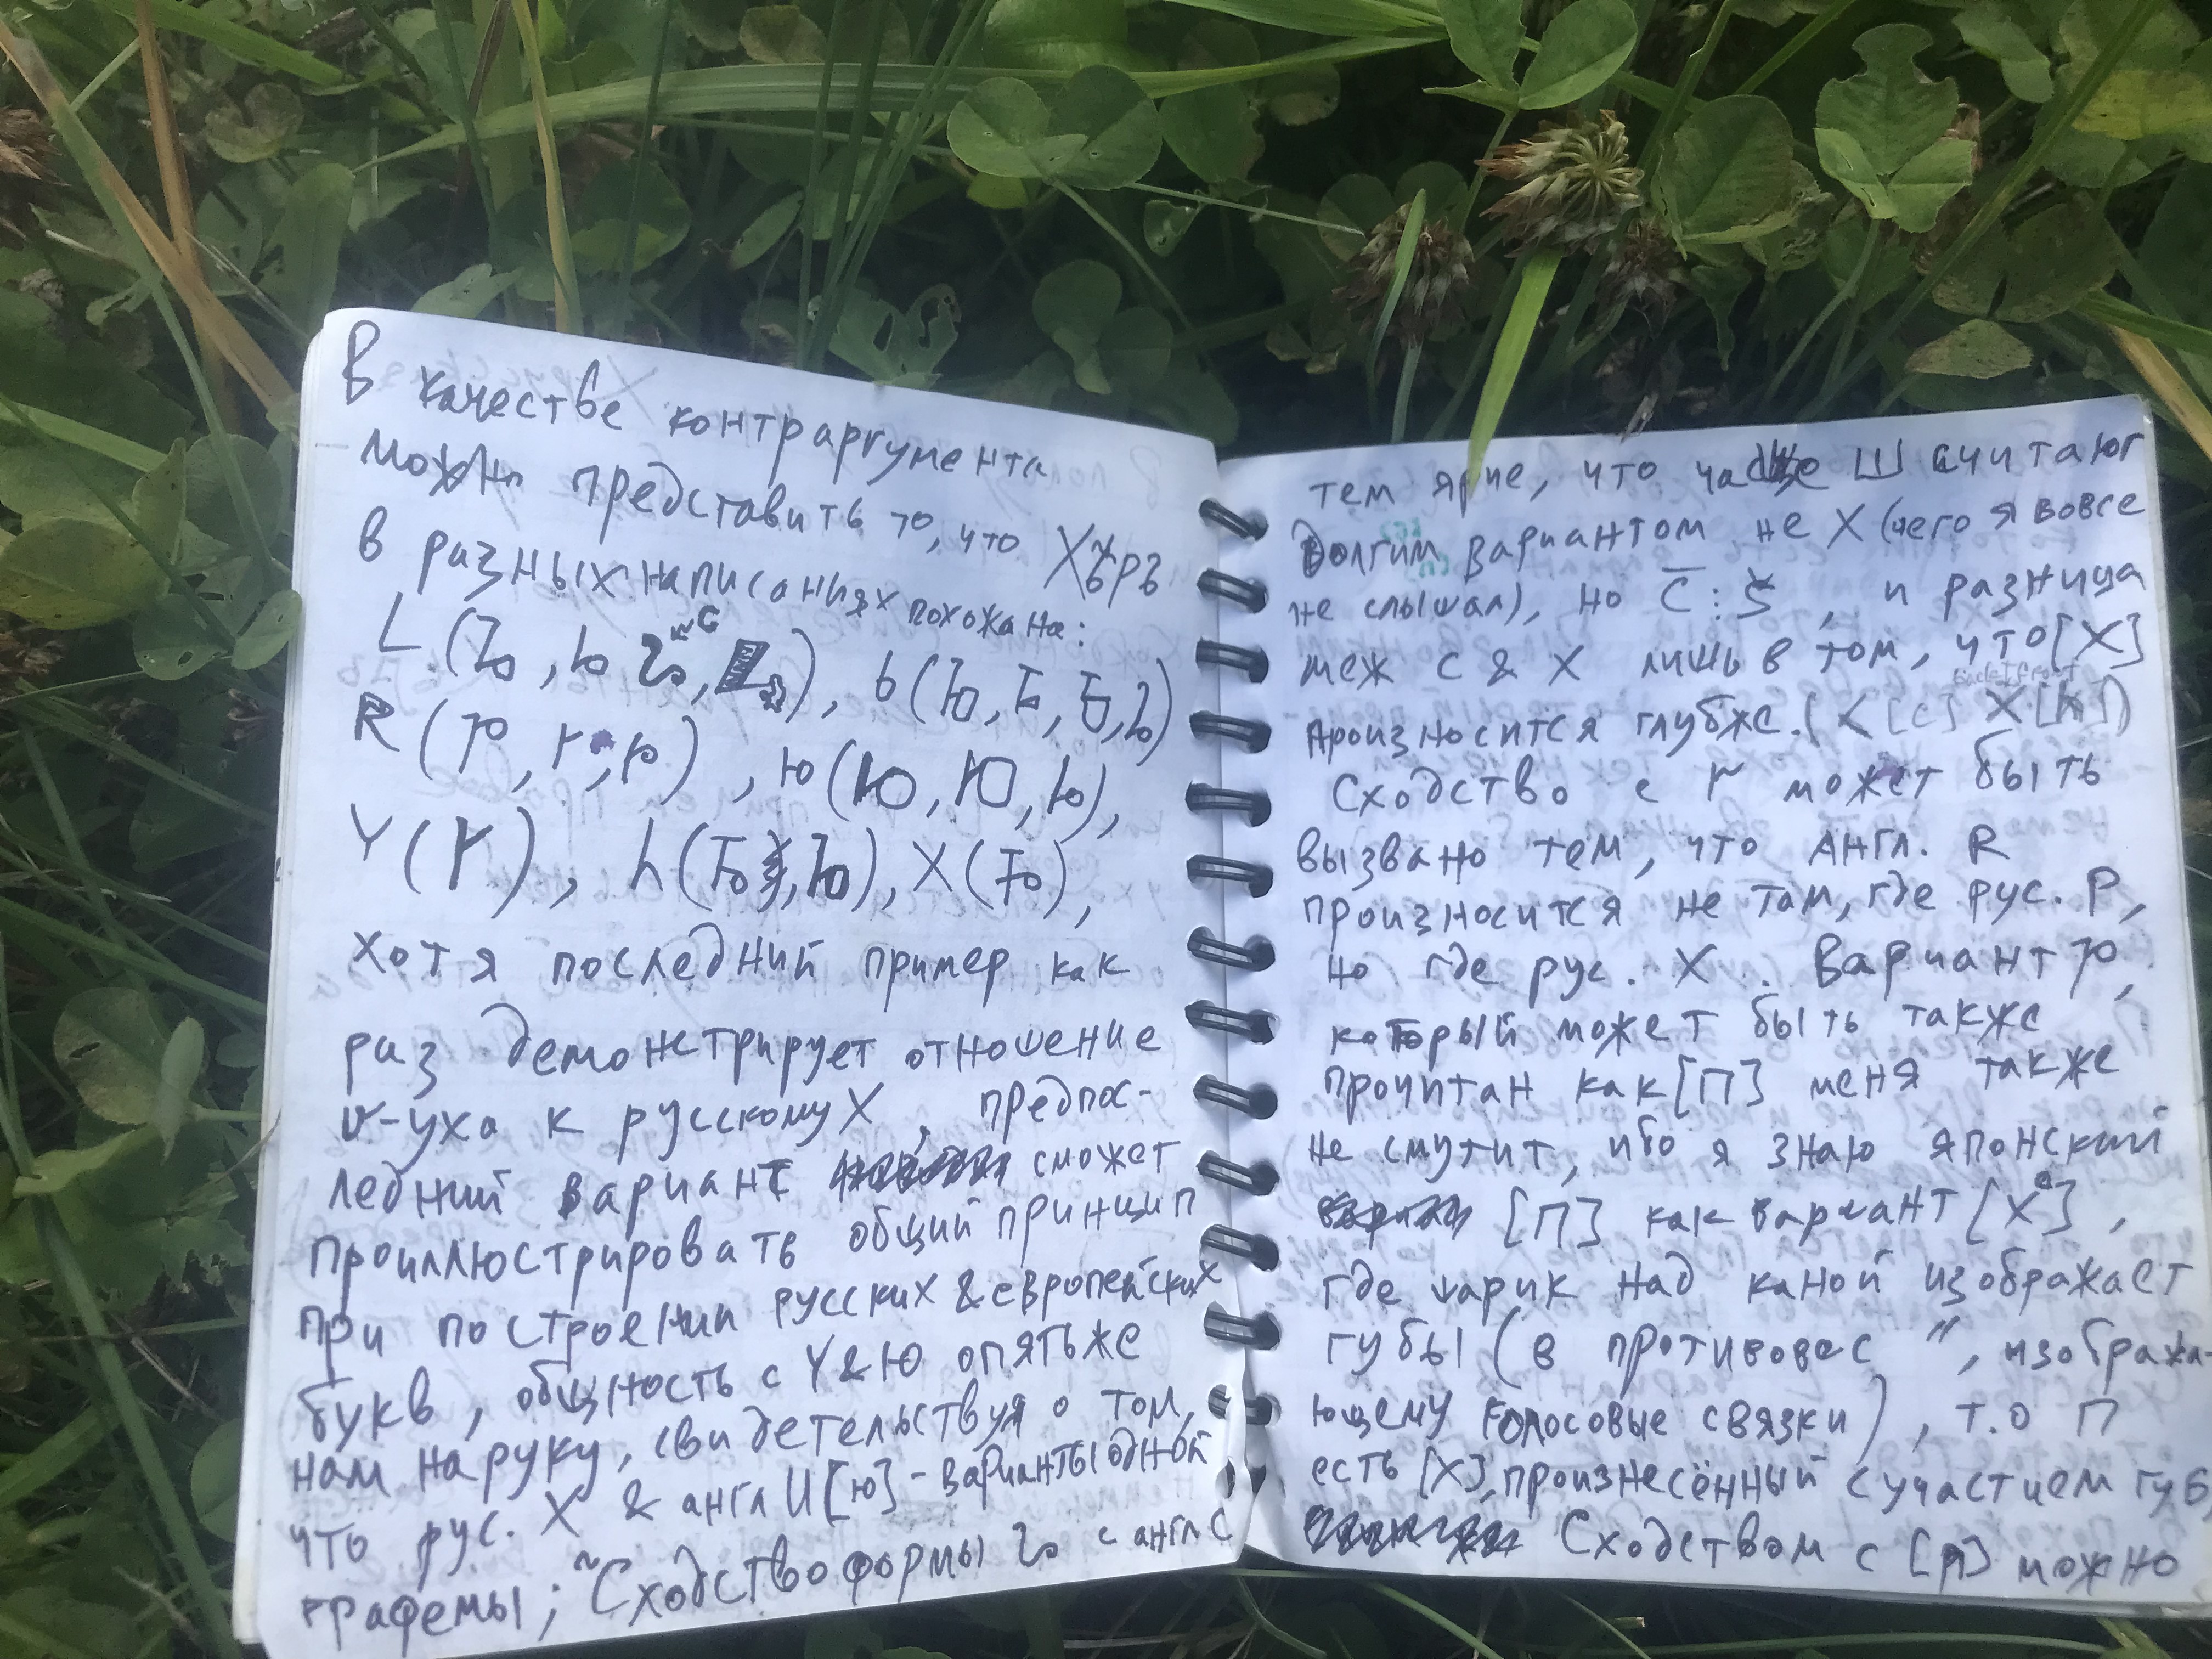 В качестве контраргумента
можно представить то, что Хъръ
в разных написаниях похожа на:
L (Ъ, ь, с), Ь (Ю, Ъ, Б, Ь)
R (Ю, г, ю), ю (Ю, Ю, ю),
Y (Y), h (Ю, Ю), X (Ю),
хотя последний пример как
раз демонстрирует отношение
v-уха к русскому Х предпос-
ледний вариант сможет
проиллюстрировать общий принцип
при построении русских & европейских
букв, общность с Y & Ю опять же
нам на руку, свидетельствуя о том,
что рус. Х & англ И [ю] - варианты одной
графемы; Сходство формы с англ С
тем ярче, что чаще Ш считают
долгим вариантом не Х (чего я вовсе
не слышал), но С: и разница
меж С & Х лишь в том, что [Х]
произносится глубже. (К [с] Х [h])
Сходство с r может быть
вызвано тем, что англ. R
произносится не там, где рус. Р,
но где рус. Х. Вариант Ю,
который может быть также
прочитан как [П] меня также
не смутит, ибо я знаю японский
[П] как вариант [Х],
где чарик над каной изображает
губы (в противовес ", изобража-
ющему голосовые связки), т.о П
есть [Х], произнесённый с участием губ,
Сходством с [р] можно